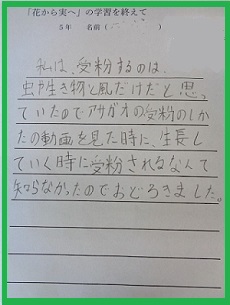 「花から実へ」の学習を終えて
5年 名前( )
私は、受粉するのは、
虫や生き物と風だけだと思っ
ていたのでアサガオの受粉のしか
たの動画を見た時に、生長し
ていく時に受粉されるなんて
知らなかったのでおどろきました。